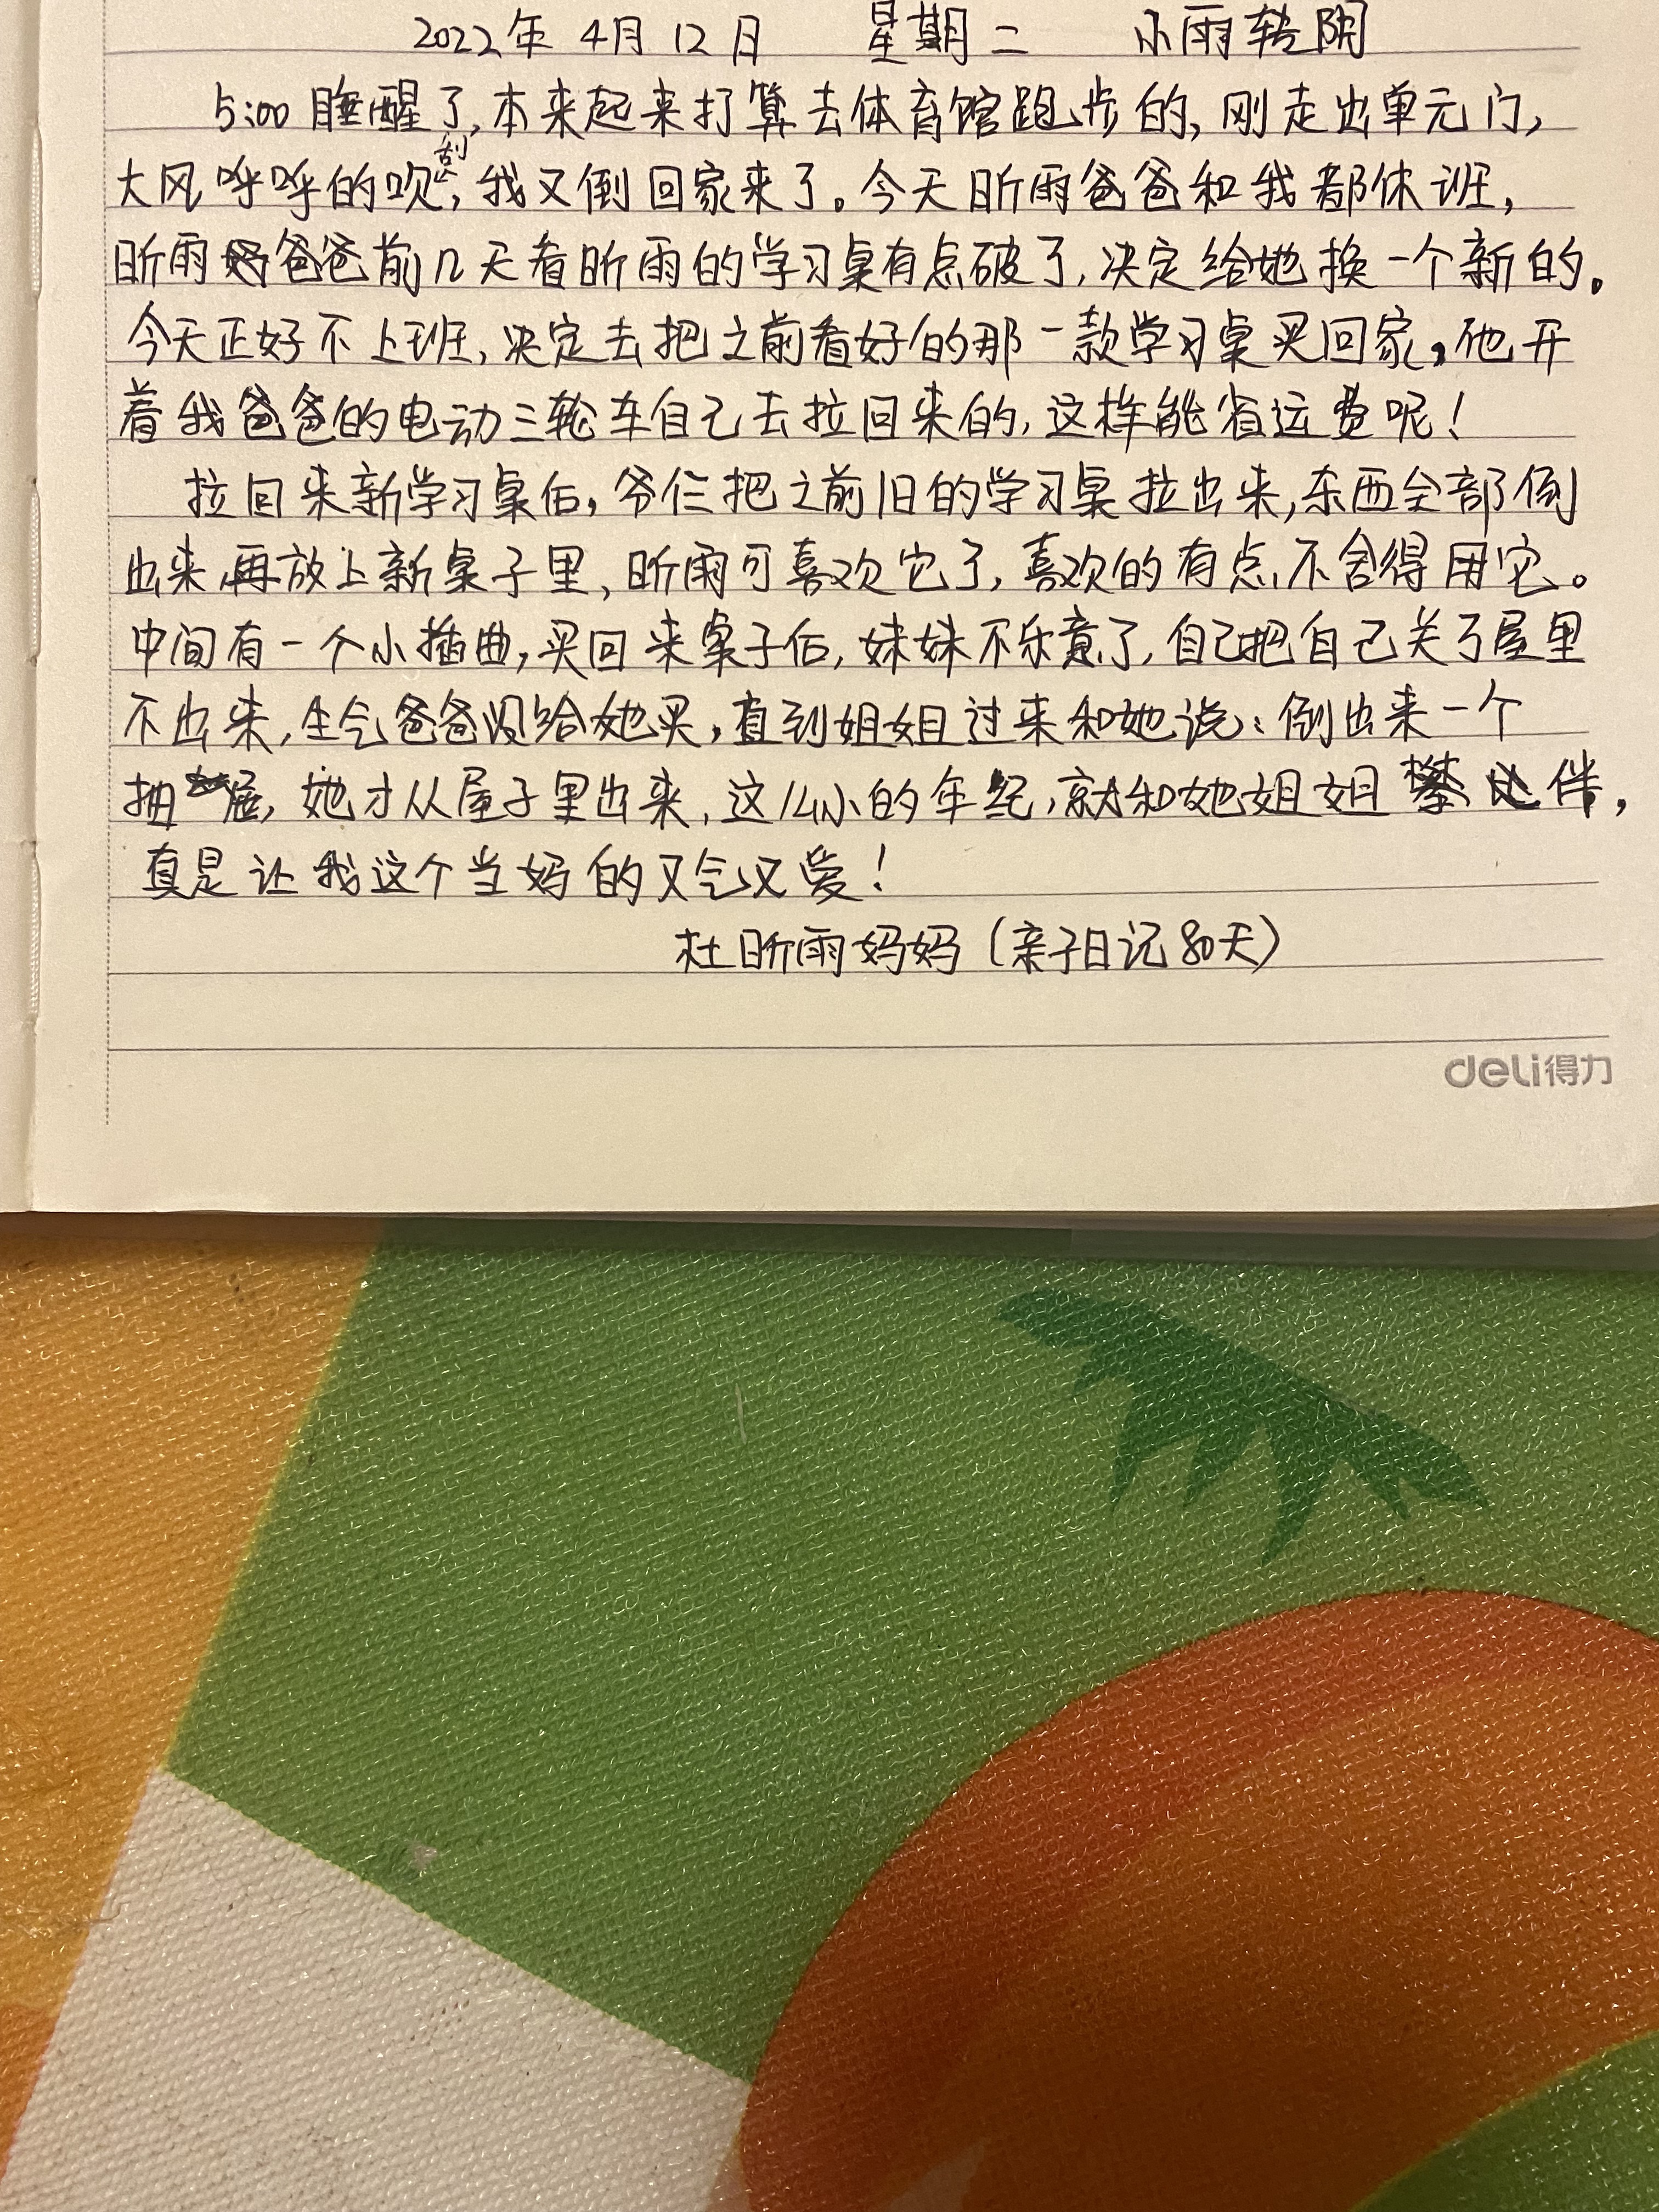 2022年 4月 12日 星期二 小雨转阴
5:00 睡醒了,本来起来打算去体育馆跑步的,刚走出单元门,
大风呼呼的吹刮,我又倒回家来了。今天昕雨爸爸和我都休班,
昕雨爸爸前几天看昕雨的学习桌有点破了,决定给她换一个新的。
今天正好不上班,决定去把之前看好的那一款学习桌买回家,他开
着我爸爸的电动三轮车自己去拉回来的,这样能省运费呢!
拉回来新学习桌后,爷仨把之前旧的学习桌拉出来,东西全部倒
出来再放上新桌子里,昕雨可喜欢它了,喜欢的有点不舍得用它。
中间有一个小插曲,买回来桌子后,妹妹不乐意了,自己把自己关了屋里
不出来,生气爸爸没给她买,直到姐姐过来和她说:倒出来一个
抽屉,她才从屋子里出来,这么小的年纪,就和她姐姐攀伴,
真是让我这个当妈的又气又爱!
杜昕雨妈妈(亲子日记80天)
deli得力